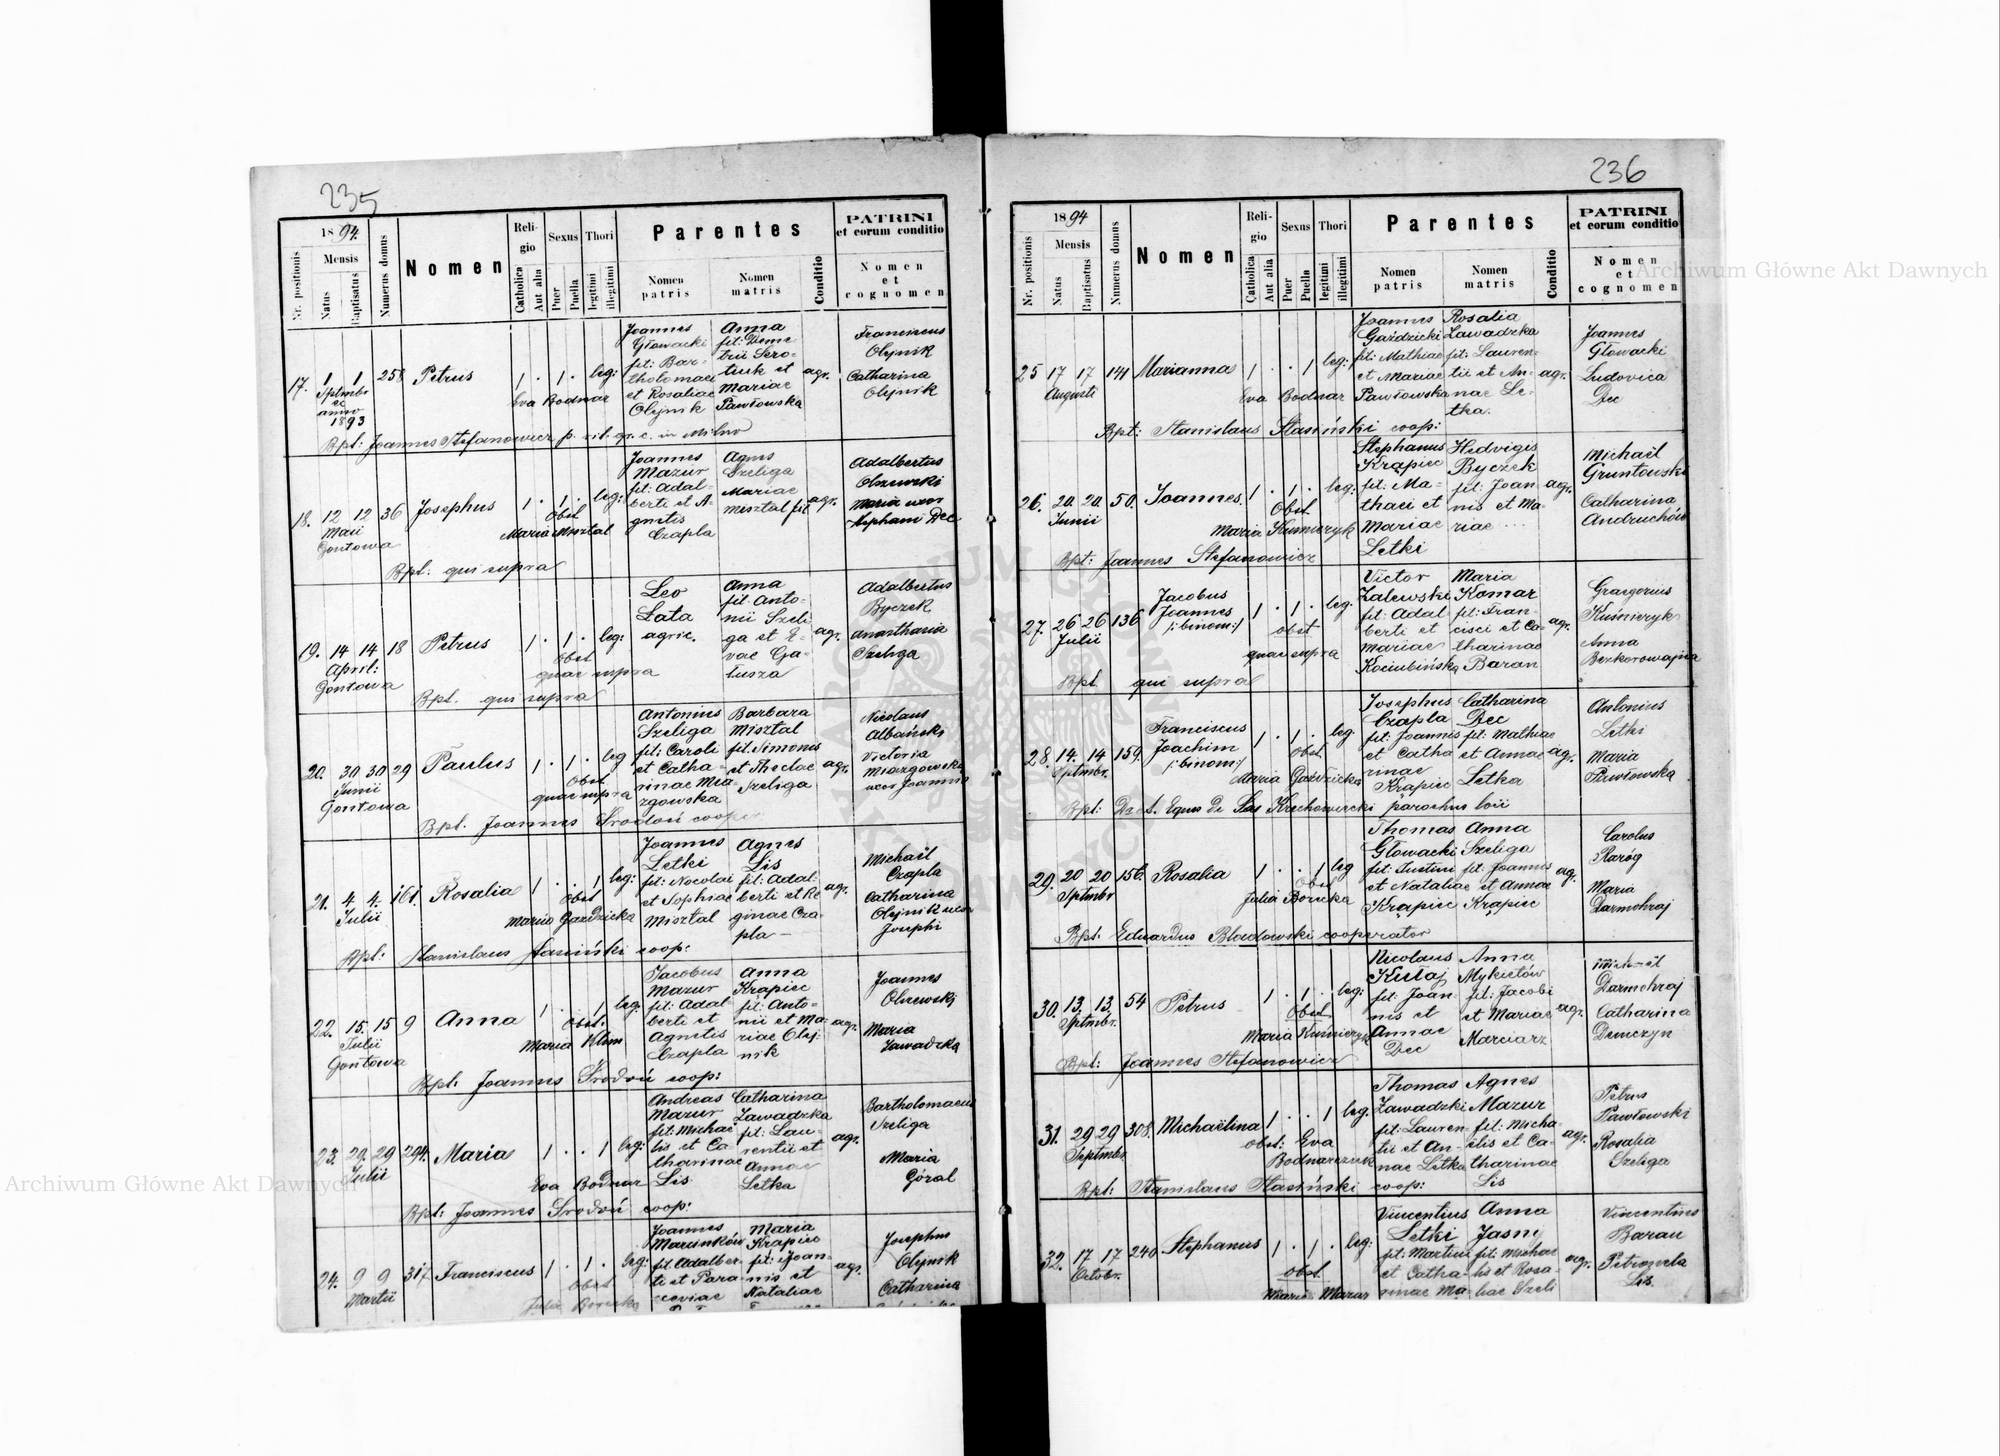 235
1894.
Nr. positionis
Mensis
Natus
Baptisatus
Numerus domus
Nomen
Religio
Catholica
Aut alia
Sexus
Puer
Puella
Thori
legitimi
illegitimi
Parentes
Nomen patris
Nomen matris
Conditio
PATRINI
et eorum conditio
Nomen
et
cognomen
17. 1 1 258 Petrus 1 . 1 . leg: agr.
Septmbr
anno
1893
Eva Bodnar
Joannes
Głowacki
fil: Bar-
tholomaei
et Rosaliae
Olejnik
Anna
fil: Deme
trii Sero-
tiuk et
Mariae
Pawłowska
Franciscus
Olejnik
Catharina
Olejnik
Bpt: Joannes Stefanowicz p. rit. gr. c. in Milno
18. 12 12 36 Josephus 1 . 1 . leg: agr.
Maii
Gontowa
Obst
Maria Misztal
Joannes
Mazur
fil: Adal-
berti et A-
gnetis
Czapla
Agnes
Szeliga
Mariae
Misztal fil
Adalbertus
Olszewski
Maria uxor
Stephani Dec
Bpt. qui supra
19. 14 14 18 Petrus 1 . 1 . leg: agr.
April:
Gontowa
Obst
quae supra
Leo
Lata
agric.
Anna
fil: Anto-
nii Szeli
ga et E-
vae Ga-
lusza
Adalbertus
Byczek
Anasthasia
Szeliga
Bpt. qui supra
20. 30 30 29 Paulus 1 . 1 . leg agr.
Junii
Gontowa
Obst
quae supra
Antonius
Szeliga
fil: Caroli
et Catha-
rinae Mia-
zgowska
Barbara
Misztal
fil. Simonis
et Theclae
Szeliga
Nicolaus
Albański
Victoria
Miazgowska
uxor Joannis
Bpt. Joannes Srodoń cooper
21. 4. 4. 161. Rosalia 1 . . 1 leg: agr.
Julii
Obst
Maria Gazdzicka
Joannes
Letki
fil: Nicolai
et Sophiae
Misztal
Agnes
Lis
fil: Adal-
berti et Re
ginae Cza-
pla —
Michaël
Czapla
Catharina
Olejnik uxor
Josephi
Bpt: Stanislaus Stasiński coop:
22. 15. 15 9 Anna 1 . . 1 leg. agr.
Julii
Gontowa
Obst:
Maria Klim
Jacobus
Mazur
fil: Adal
berti et
Agnetis
Czapla
Anna
Krąpiec
fil: Anto-
nii et Ma-
riae Olej-
nik
Joannes
Olszewski
Maria
Zawadzka
Bpt: Joannes Srodoń coop:
23. 29. 29 294. Maria 1 . . 1 leg: agr.
Julii
Eva Bodnar
Andreas
Mazur
fil: Michaë
lis et Ca
tharinae
Lis
Catharina
Zawadzka
fil: Lau-
rentii et
Annae
Letka
Bartholomaeus
Szeliga
Maria
Góral
Bpt: Joannes Srodoń coop:
24. 9 9 317. Franciscus 1 . 1 . leg: agr.
Martii
Obst
Julia Borucka
Joannes
Marcinków
fil. Adalber-
ti et Para-
sceviae
Maria
Krąpiec
fil: Joan-
nis et
Nataliae
Josephus
Olejnik
Catharina
236
1894
Nr. positionis
Mensis
Natus
Baptisatus
Numerus domus
Nomen
Religio
Catholica
Aut alia
Sexus
Puer
Puella
Thori
legitimi
illegitimi
Parentes
Nomen patris
Nomen matris
Conditio
PATRINI
et eorum conditio
Nomen
et
cognomen
25 17 17 141 Marianna 1 . . 1 leg: agr.
Augusti
Eva Bodnar
Joannes
Gaździcki
fil: Mathiae
et Mariae
Pawłowska
Rosalia
Zawadzka
fil: Lauren-
tii et An-
nae Le-
tka.
Joannes
Głowacki
Ludovica
Dec
Bpt: Stanislaus Stasiński coop:
26. 20. 20. 50. Joannes. 1 . 1 . leg: agr.
Junii
Obst.
Maria Kuśnieryk
Stephanus
Krąpiec
fil: Ma-
thaei et
Mariae
Letki
Hedvigis
Byczek
fil: Joan-
nis et Ma-
riae ...
Michaël
Gruntowski
Catharina
Andruchów
Bpt: Joannes Stefanowicz
27. 26 26 136 Jacobus 1 . 1 . leg: agr.
Joannes
/:binom:/
Julii
obst
quae supra
Victor
Zalewski
fil: Adal
berti et
Mariae
Kociubińska
Maria
Komar
fil: Fran-
cisci et Ca-
tharinae
Baran
Graegorius
Kuśnieryk
Anna
Bezkorowajna
Bpt qui supra
28. 14. 14 159. Franciscus 1 . 1 . leg. agr.
Joachim
/:binom:/
Sptmbr.
Obst
Maria Gaździcka
Josephus
Czapla
fil: Joannis
et Catha
rinae
Krąpiec
Catharina
Dec
fil: Mathiae
et Annae
Letka
Antonius
Letki
Maria
Pawłowska
Bpt: Eques de Sas Krechowiecki parochus loci
29. 20 20 156. Rosalia 1 . . 1 leg agr.
Sptmbr
Obst
Julia Borucka
Thomas
Głowacki
fil: Justini
et Nataliae
Krąpiec
Anna
Szeliga
fil: Joannis
et Annae
Krąpiec
Carolus
Raróg
Maria
Darmohraj
Bpt: Eduardus Bladowski cooperator
30. 13. 13. 54 Petrus 1 . 1 . leg: agr.
Sptmbr.
Obst
Maria Kuśnieryk
Nicolaus
Kułaj
fil: Joan-
nis et
Annae
Dec
Anna
Mykietów
fil: Jacobi
et Mariae
Marciarz
Darmohraj
Catharina
Demczyn
Bpt: Joannes Stefanowicz
31. 29 29 308. Michaëlina 1 . . 1 leg: agr.
Septmbr.
obst: Eva
Bodnarczuk
Thomas
Zawadzki
fil: Lauren-
tii et An-
nae Letka
Agnes
Mazur
fil: Micha-
ëlis et Ca-
tharinae
Lis
Petrus
Pawłowski
Rosalia
Szeliga
Bpt: Stanislaus Stasiński coop:
32. 17 17 240 Stephanus 1 . 1 . leg: agr.
Octobr.
obst
Maria Mazur
Vincentius
Letki
fil: Martini
et Catha-
rinae Ma-
Anna
Jasnij
fil: Michaë
lis et Rosa-
liae Szeli
Vincentius
Baran
Petronela
Lis.
Archiwum Główne Akt Dawnych
Archiwum Główne Akt Dawnych